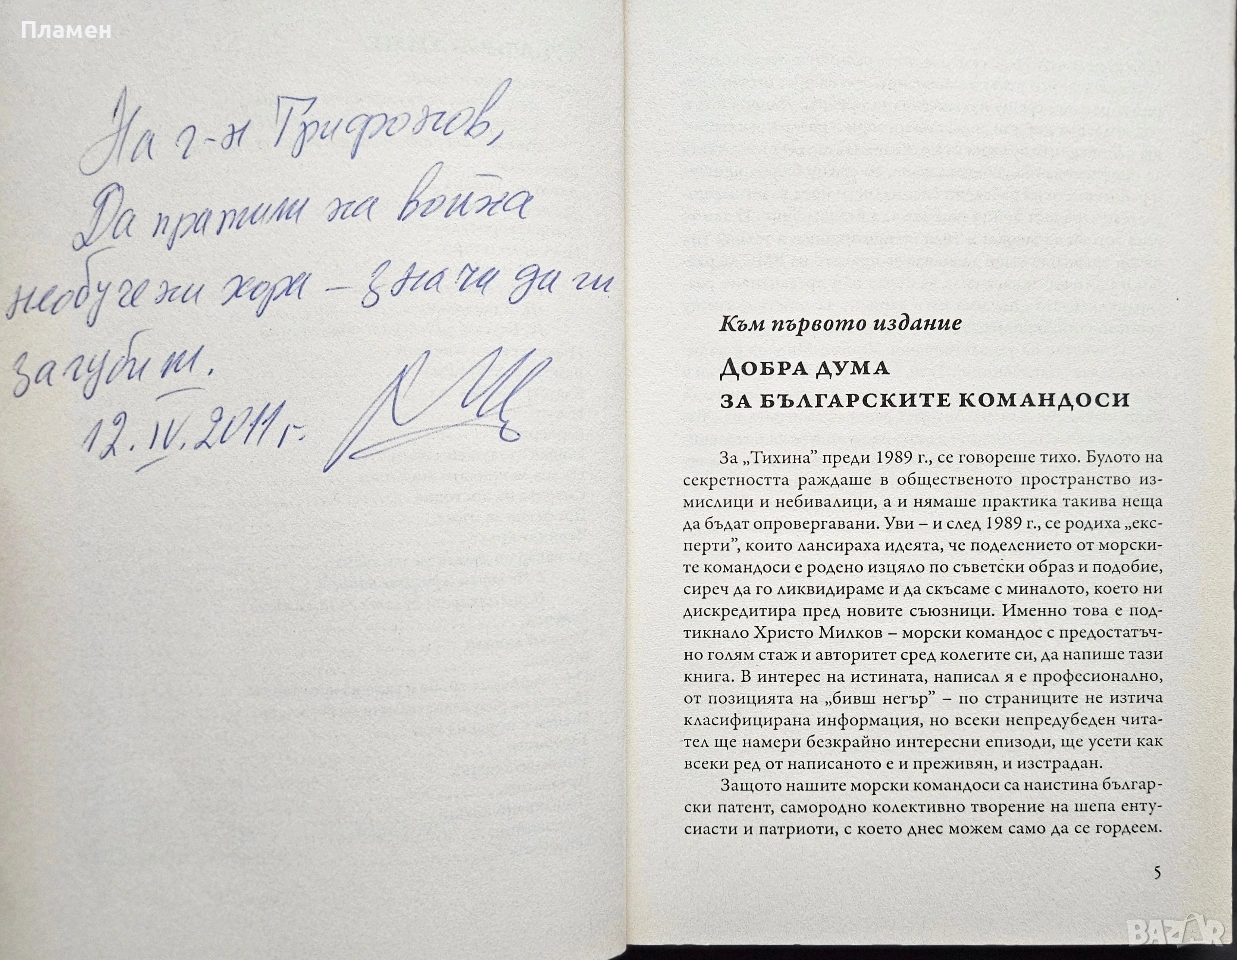 Пламен
На г-н Трифонов,
Да пратиш на война
необучени хора – значи да ги
загубиш.
12.IV.2011 г.
Към първото издание
ДОБРА ДУМА
ЗА БЪЛГАРСКИТЕ КОМАНДОСИ
За „Тихина” преди 1989 г., се говореше тихо. Булото на
секретността раждаше в общественото пространство из-
мислици и небивалици, а и нямаше практика такива неща
да бъдат опровергавани. Уви – и след 1989 г., се родиха „екс-
перти”, които лансираха идеята, че поделението от морски-
те командоси е родено изцяло по съветски образ и подобие,
сиреч да го ликвидираме и да скъсаме с миналото, което ни
дискредитира пред новите съюзници. Именно това е под-
тикнало Христо Милков – морски командос с предостатъч-
но голям стаж и авторитет сред колегите си, да напише тази
книга. В интерес на истината, написал я е професионално,
от позицията на „бивш негър” – по страниците не изтича
класифицирана информация, но всеки непредубеден чита-
тел ще намери безкрайно интересни епизоди, ще усети как
всеки ред от написаното е и преживян, и изстрадан.
Защото нашите морски командоси са наистина българ-
ски патент, самородно колективно творение на шепа енту-
сиасти и патриоти, с което днес можем само да се гордеем.
5
BAZAR